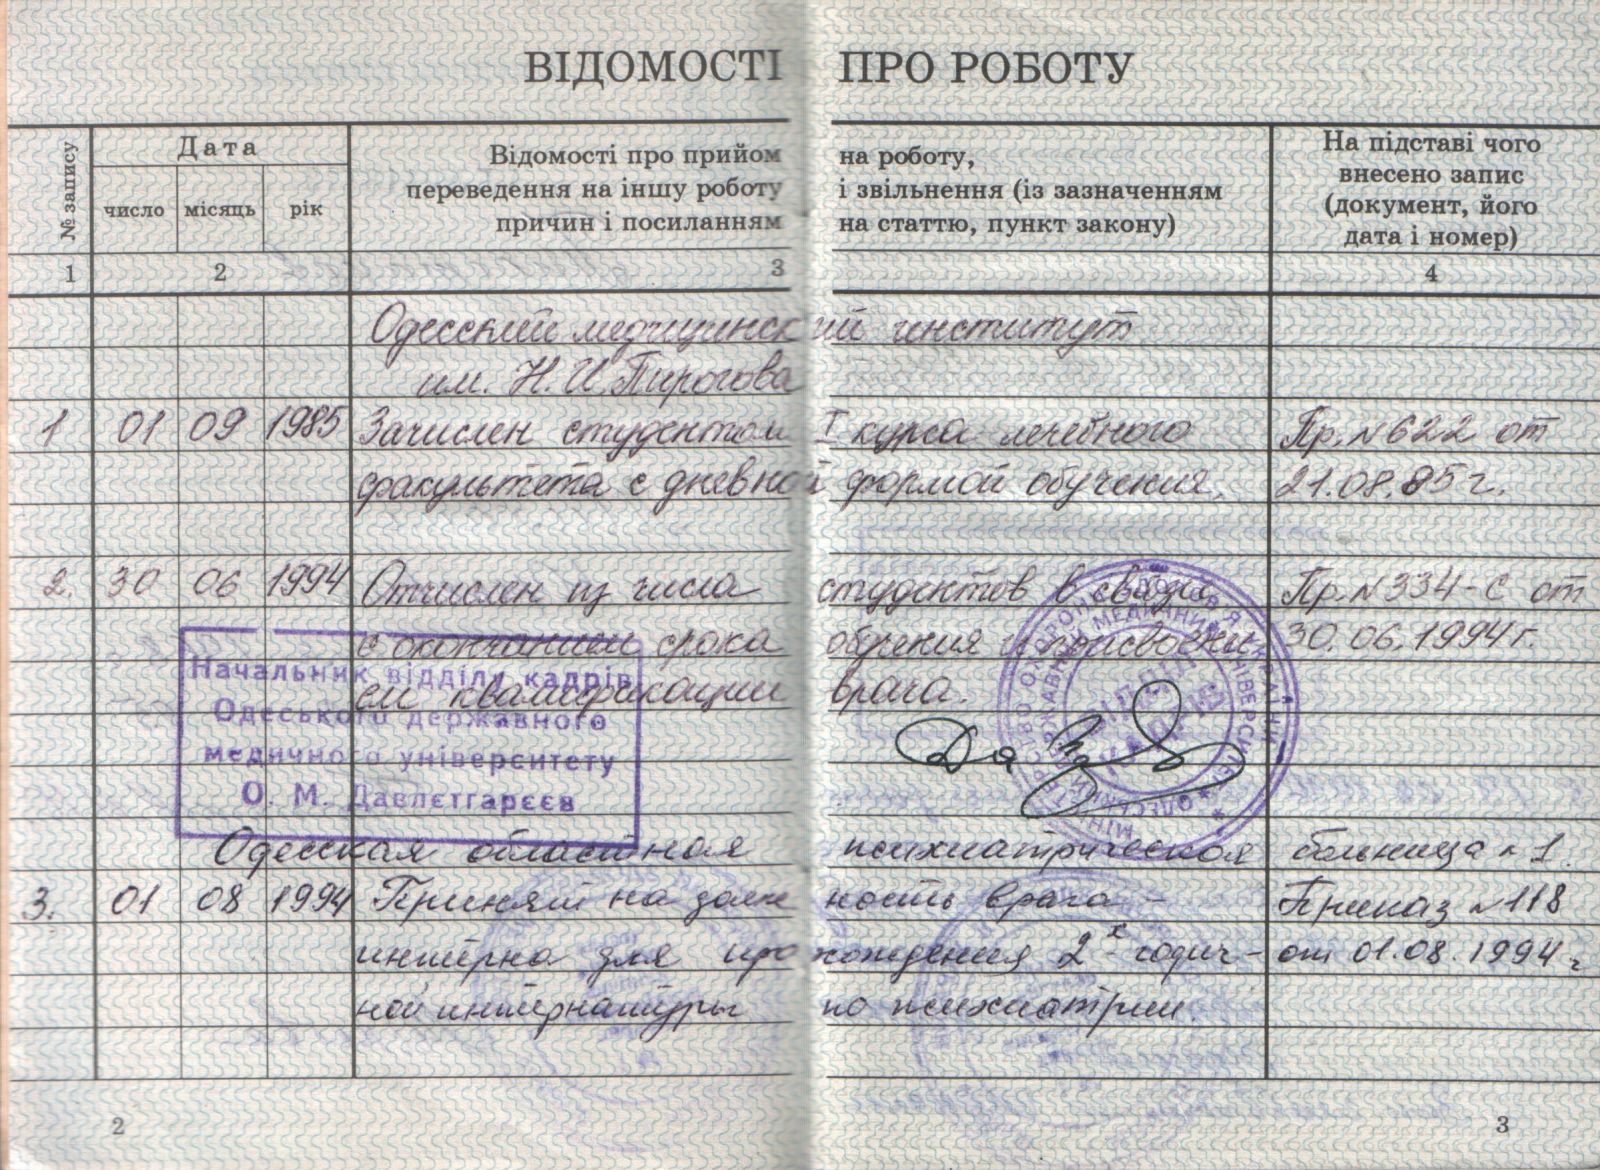 ВІДОМОСТІ ПРО РОБОТУ
№ запису
Дата
число місяць рік
Відомості про прийом на роботу,
переведення на іншу роботу і звільнення (із зазначенням
причин і посиланням на статтю, пункт закону)
На підставі чого
внесено запис
(документ, його
дата і номер)
1 2 3 4
Одесский медицинский институт
им. Н.И.Пирогова
1 01 09 1985 Зачислен студентом I курса лечебного Пр.N622 от
факультета с дневной формой обучения. 21.08.85г.
2. 30 06 1994 Отчислен из числа студентов в связи Пр.N334-С от
с окончанием срока обучения и присвоени 30.06.1994г.
ем квалификации врача.
Начальник відділу кадрів
Одеського державного
медичного університету
О. М. Давлєтгарєєв
Одесская областная психиатрическая больница N1.
3. 01 08 1994 Принят на долж ность врача- Приказ N118
интерна для про хождения 2х-годич- от 01.08.1994г
ной интернатуры по психиатрии.
2
3